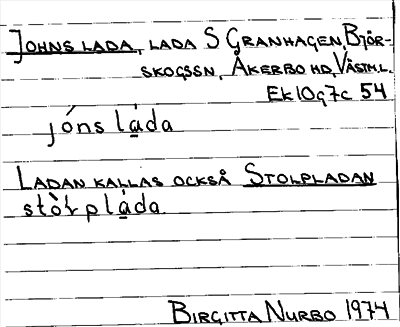 JOHNS LADA, LADA S GRANHAGEN, BJÖR-
SKOGSSN, ÅKERBO HD, VÄSTML.
EK 10G7C 54
jóns lada
LADAN KALLAS OCKSÅ STOLPLADAN
stòɫplada
BIRGITTA NURBO 1974